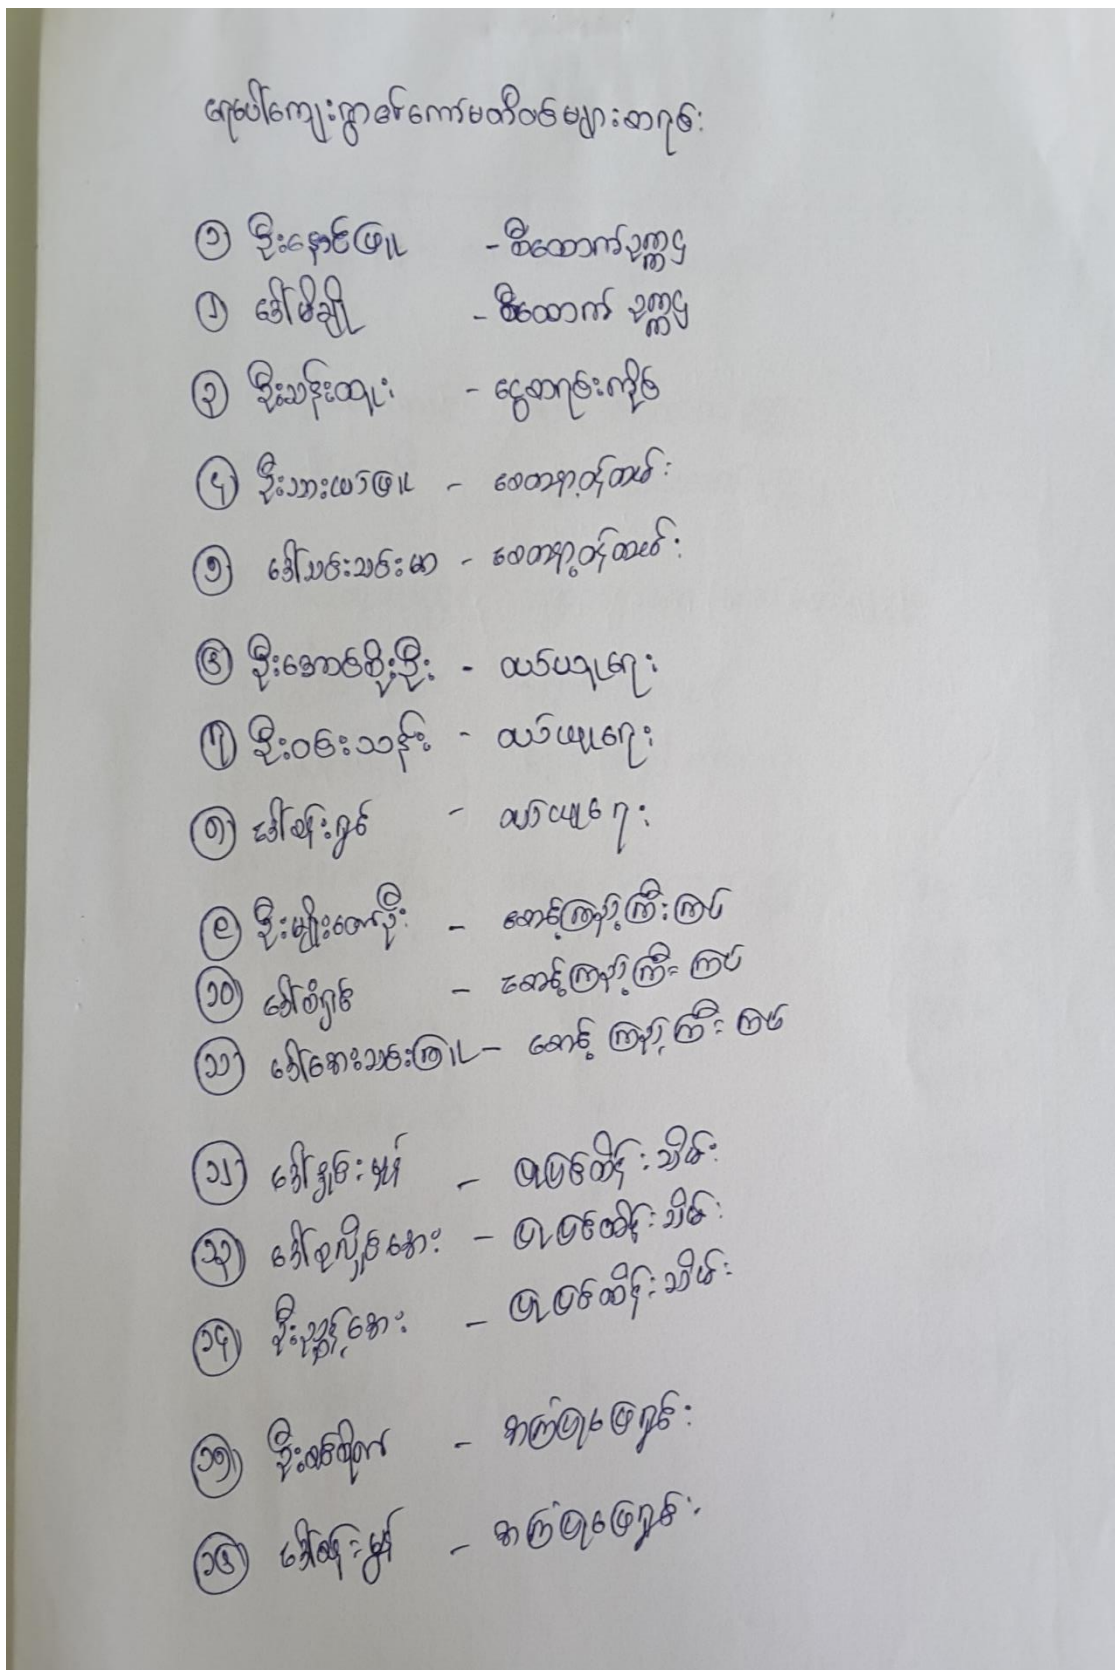 ရေပေါ်ကျေးရွာစင်ကော်မတီဝင်များစာရင်း
၁ ဦးနောင်ဖြူ - စီထောက်ဥက္ကဋ္ဌ
၂ ဒေါ်မိချို - စီထောက် ဥက္ကဋ္ဌ
၃ ဦးသန်းထူး - ငွေစာရင်းကိုင်
၄ ဦးသားယဉ်ဖြူ - စေတနာ့ဝန်ထမ်း
၅ ဒေါ်သင်းသင်းမာ - စေတနာ့ဝန်ထမ်း
၆ ဦးအောင်စိုးဦး - ထယ်ယူရေး
၇ ဦးဝင်းသန်း - ထယ်ယူရေး
၈ ဒေါ်စန်းရွှင် - ထယ်ယူရေး
၉ ဦးမျိုးဇော်ဦး - စောင့်ကြည့်ကြီးကြပ်
၁၀ ဒေါ်တင်ရှင် - စောင့်ကြည့်ကြီးကြပ်
၁၁ ဒေါ်အေးသင်းကြူ - စောင့်ကြည့်ကြီးကြပ်
၁၂ ဒေါ်နှင်းမှုံ - ပြုပြင်ထိန်းသိမ်း
၁၃ ဒေါ်ခုလှိုင်အေး - ပြုပြင်ထိန်းသိမ်း
၁၄ ဦးညွန့်အေး - ပြုပြင်ထိန်းသိမ်း
၁၅ ဦးစစ်ရိုက် - အကြံပြုဖြေရှင်း
၁၆ ဒေါ်စန်းမွှန် - အကြံပြုဖြေရှင်း